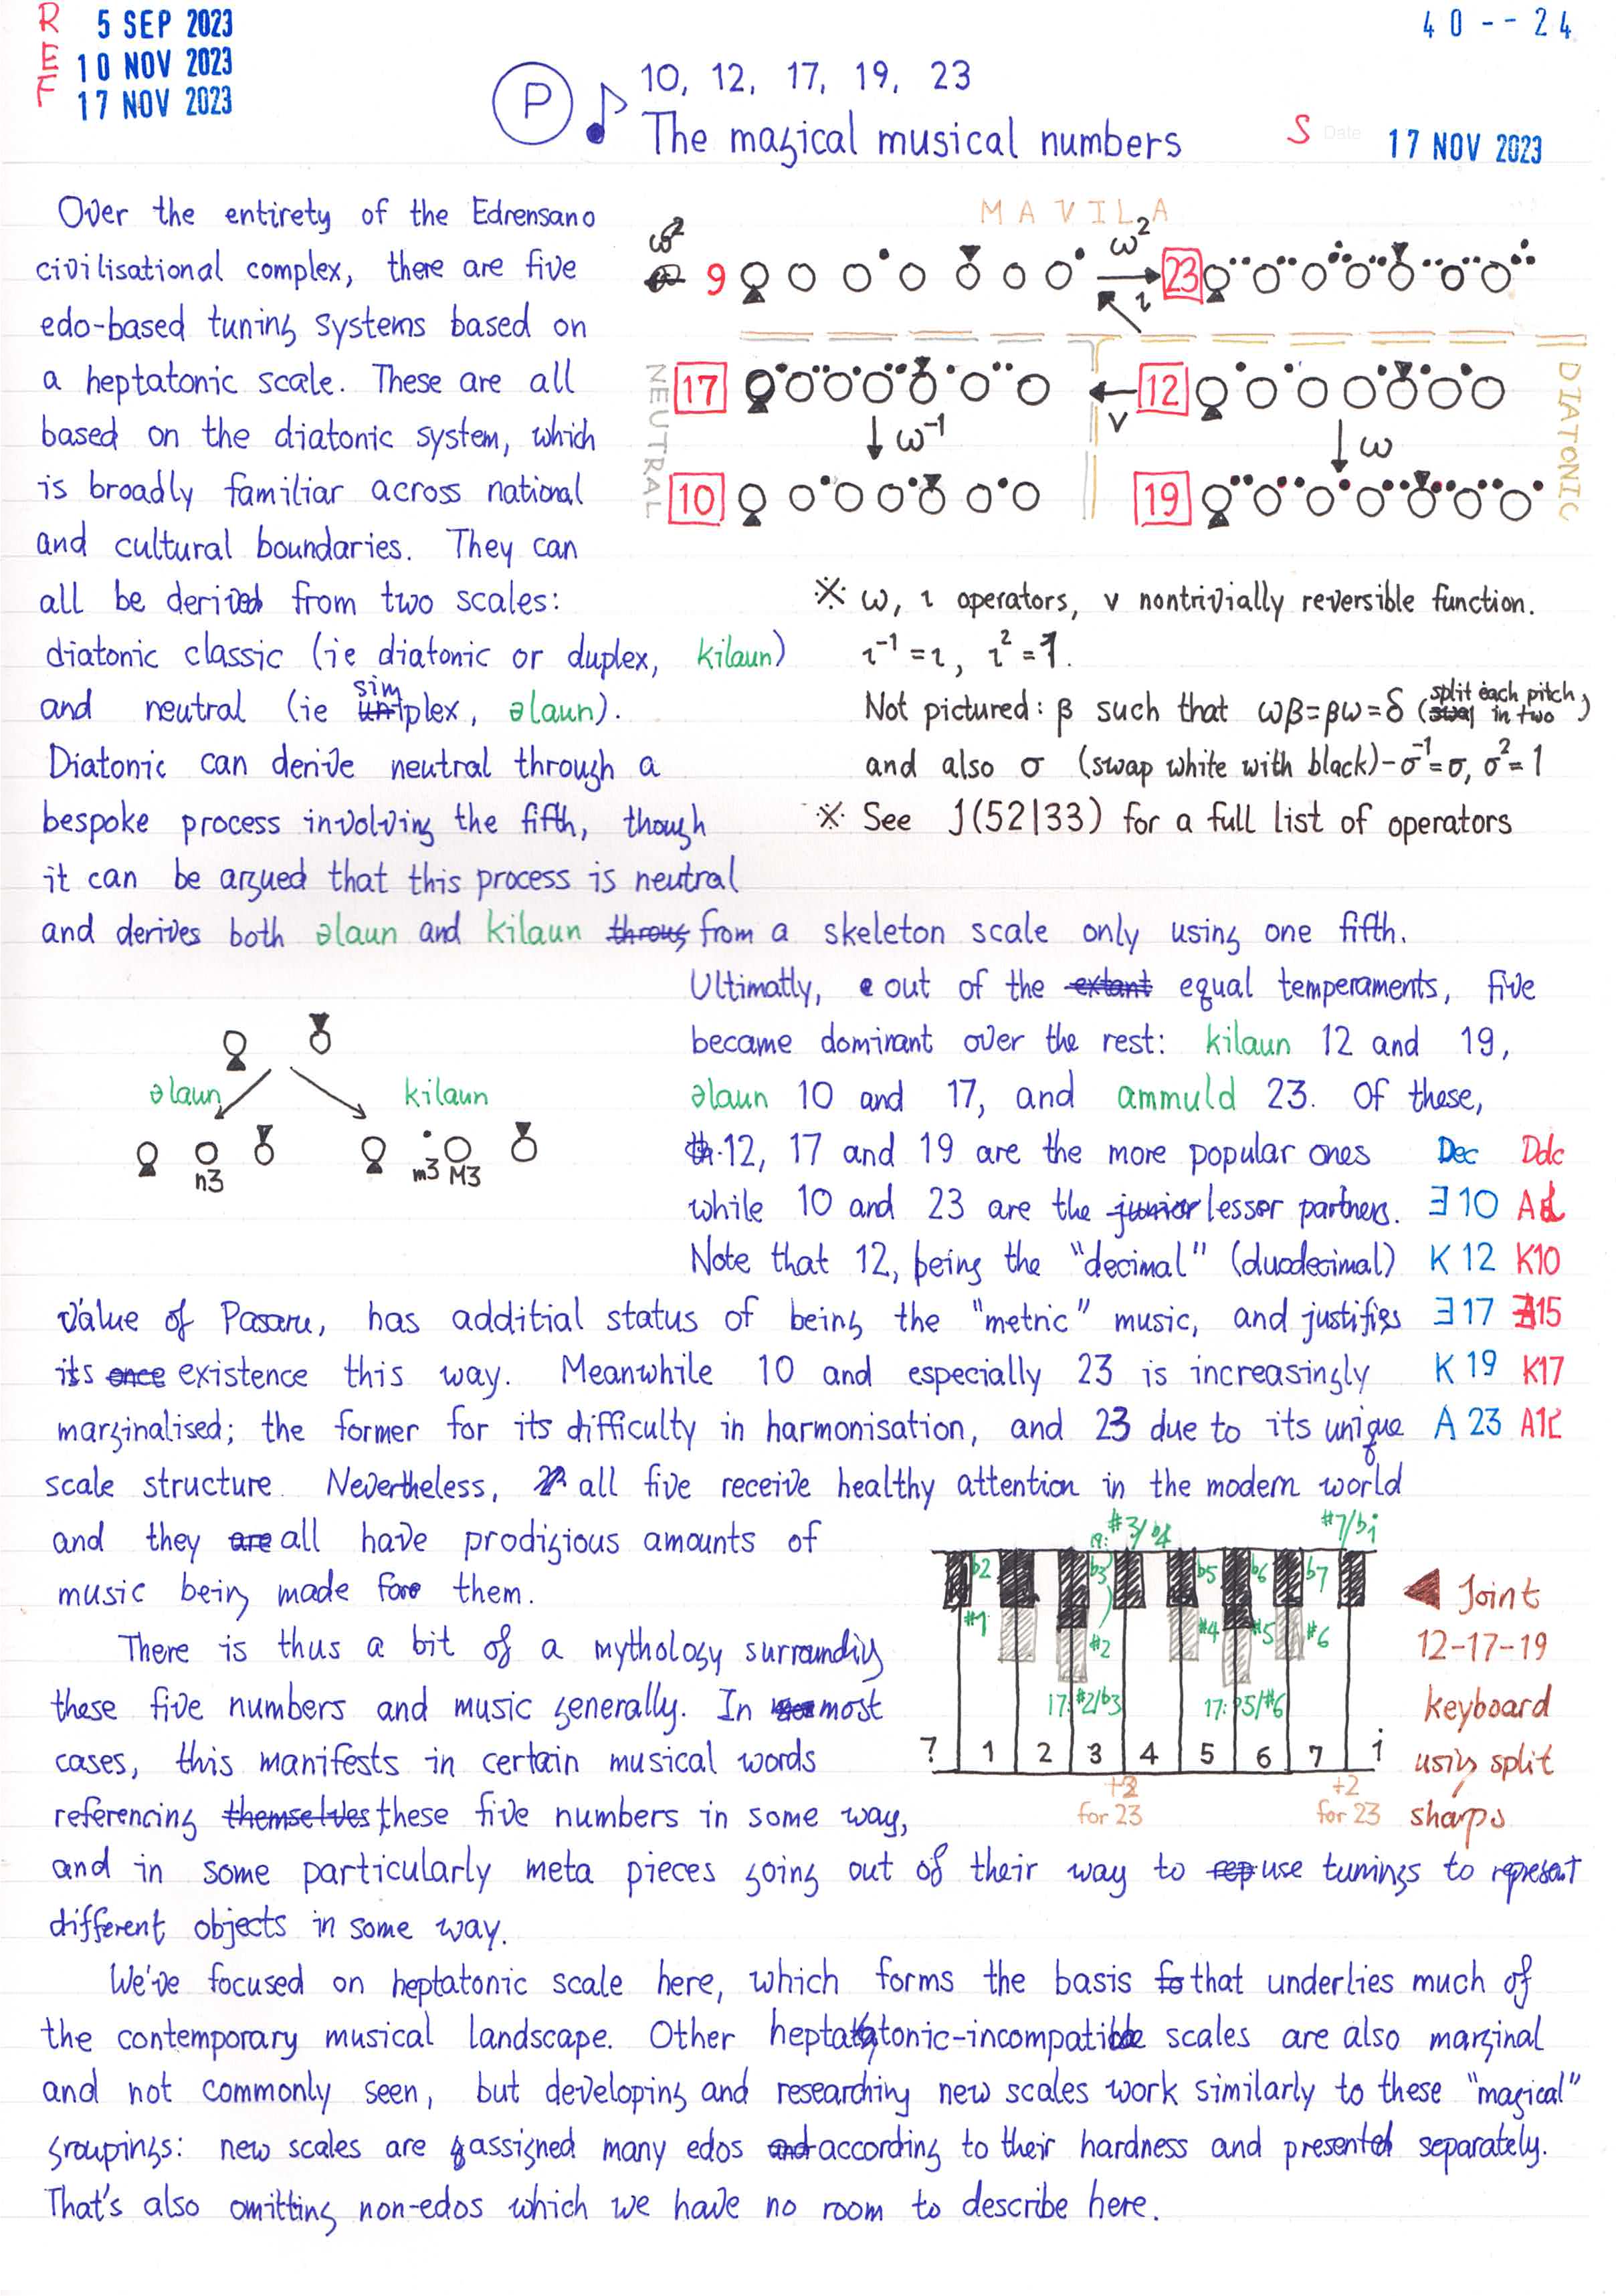 REF
5 SEP 2023
10 NOV 2023
17 NOV 2023
40--24
P
10, 12, 17, 19, 23
The magical musical numbers
S Date 17 NOV 2023
Over the entirety of the Edrensano
civilisational complex, there are five
edo-based tuning systems based on
a heptatonic scale. These are all
based on the diatonic system, which
is broadly familiar across national
and cultural boundaries. They can
all be derived from two scales:
diatonic classic (ie diatonic or duplex, kilaun)
and neutral (ie simplex, əlaun).
Diatonic can derive neutral through a
bespoke process involving the fifth, though
it can be argued that this process is neutral
and derives both əlaun and kilaun from a skeleton scale only using one fifth.
MAVILA
9 ω² ι 23
NEUTRAL
17 ν 12
DIATONIC
ω⁻¹ ω
10 19
※ ω, ι operators, ν nontrivially reversible function.
ι⁻¹=ι, ι²=1.
Not pictured: β such that ωβ=βω=δ (split each pitch in two)
and also σ (swap white with black)-σ⁻¹=σ, σ²=1
※ See J(52|33) for a full list of operators
əlaun kilaun
n3 m3 M3
Ultimatly, out of the equal temperaments, five
became dominant over the rest: kilaun 12 and 19,
əlaun 10 and 17, and ammuld 23. Of these,
12, 17 and 19 are the more popular ones
while 10 and 23 are the lesser partners.
Note that 12, being the "decimal" (duodecimal)
value of Pasaru, has additial status of being the "metric" music, and justifies
its existence this way. Meanwhile 10 and especially 23 is increasingly
marginalised; the former for its difficulty in harmonisation, and 23 due to its unique
scale structure. Nevertheless, all five receive healthy attention in the modern world
and they all have prodigious amounts of
music being made for them.
Dec Ddc
Ǝ10
K 12 K10
Ǝ17
K 19 K17
A 23
There is thus a bit of a mythology surrounding
these five numbers and music generally. In most
cases, this manifests in certain musical words
referencing these five numbers in some way,
and in some particularly meta pieces going out of their way to use tunings to represent
different objects in some way.
19: #3/b4 #7/bi
b2 b3 b5 b6 b7
#1 #2 #4 #5 #6
17: #2/b3
7 1 2 3 4 5 6 7 i
+2
for 23
+2
for 23
Joint
12-17-19
keyboard
using split
sharps
We've focused on heptatonic scale here, which forms the basis that underlies much of
the contemporary musical landscape. Other heptatonic-incompatible scales are also marginal
and not commonly seen, but developing and researching new scales work similarly to these "magical"
groupings: new scales are assigned many edos according to their hardness and presented separately.
That's also omitting non-edos which we have no room to describe here.